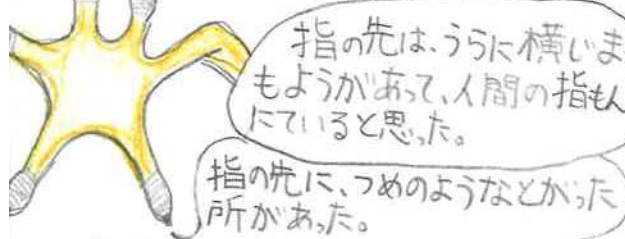 指の先は、うらに横じま
もようがあって、人間の指もん
にていると思った。
指の先に、つめのようなとがった
所があった。